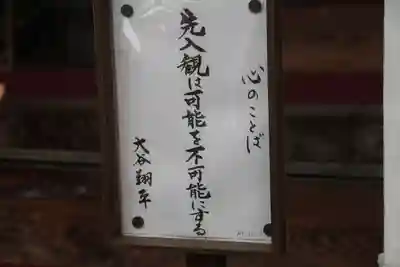 心のことば
先入観は可能を不可能にする
大谷翔平